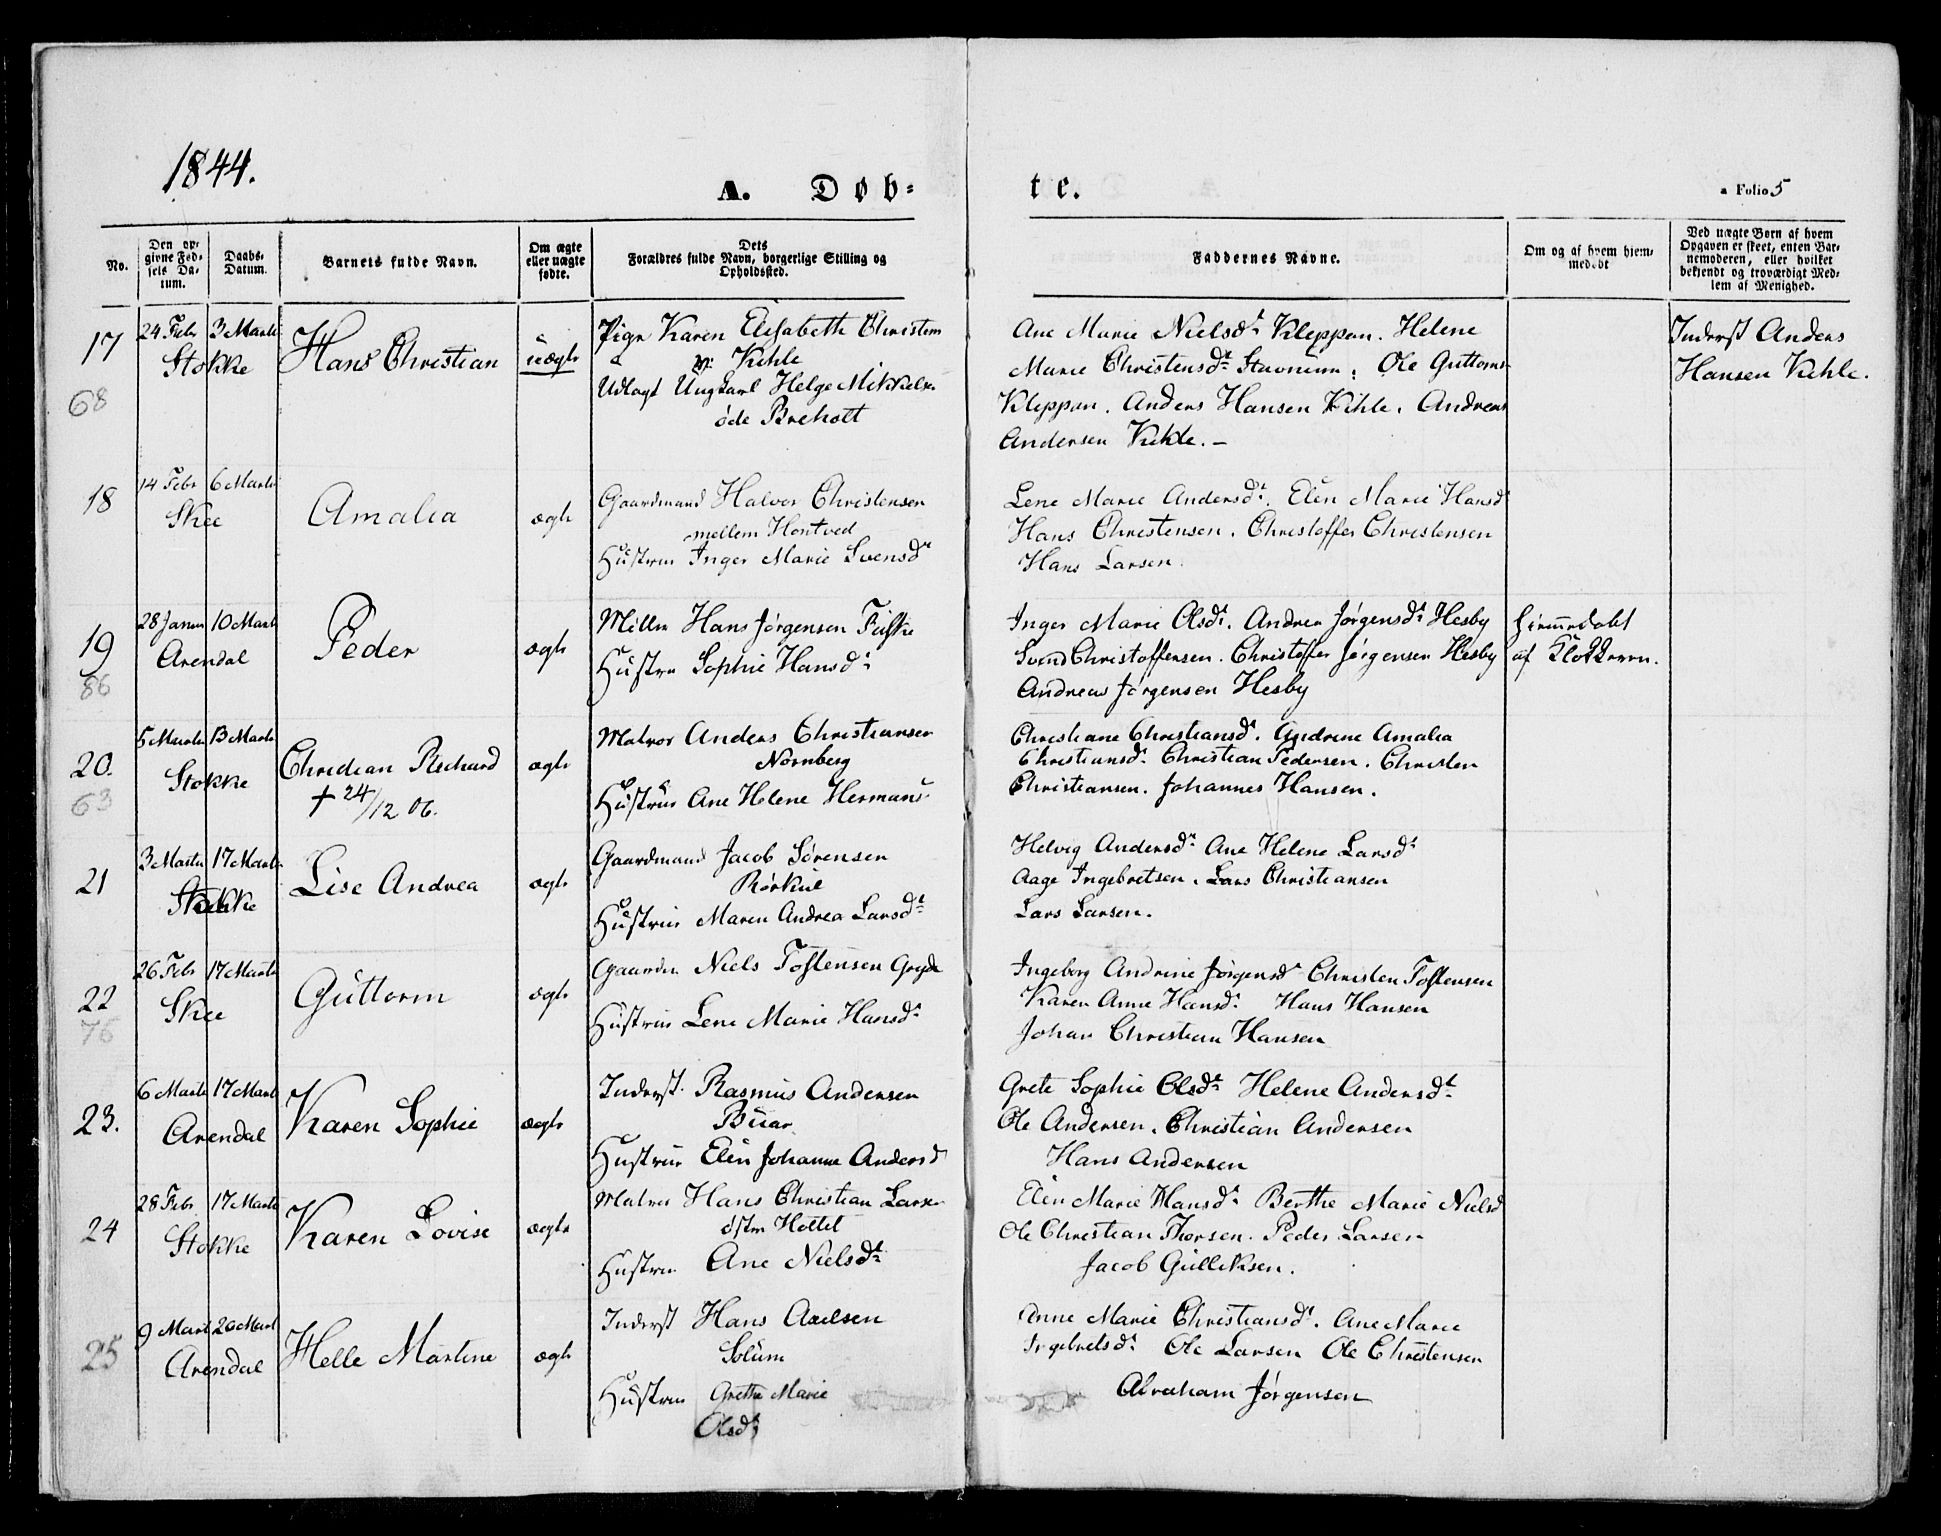 1844.
A. Døb-
te.
a Folio 5
No.
Den op-
givne Fød-
sels Da-
tum.
Daabs-
Datum.
Barnets fulde Navn.
Om ægte
eller uægte
fødte.
Dets
Forældres fulde Navn, borgerlige Stilling og
Opholdssted.
Faddernes Navne.
Om og af hvem hjem-
medøbt
Ved uægte Børn af hvem
Opgaven er skeet, enten Bar-
nemoderen, eller hvilket
bekjendt og troværdigt Med-
lem af Menighed.
17
68
24 Febr 3 Marts
Stokke
Hans Christian
uægte
Pige Karen Elisabeth Christens
Kihle
Udlagt Ungkarl Helge Mikkelsen
øde Breholt
Ane Marie Nielsdt Kleppan. Helene
Marie Christensdt Stavnum. Ole Guttorms
Kleppan. Anders Hansen Kihle. Andreas
Andersen Kihle.
Inderst Anders
Hansen Kihle.
18
14 Febr 6 Marts
Skee
Amalia
ægte
Gaardmand Halvor Christensen
mellem Hontved
Hustrue Inger Marie Svensdt
Lene Marie Andersdt. Elen Marie Hansd
Hans Christensen. Christoffer Christensen
Hans Larsen.
19
86
28 Januar 10 Marts
Arendal
Peder
ægte
Møller Hans Jørgensen Feiske
Hustru Sophie Hansdt
Inger Marie Olsdt. Andrea Jørgensdt Hesby
Svend Christoffersen. Christoffer Jørgensen Hesby
Andreas Jørgensen Hesby
hjemmedøbt
af Klokkeren.
20.
63
5 Marts 13 Marts
Stokke
Christian Richard
† 24/12 06.
ægte
Matros Anders Christiansen
Nørnberg
Hustrue Ane Helene Hermans
Christiane Christiansdt. Andrine Amalia
Christiansdt. Christian Pedersen. Christen
Christiansen. Johannes Hansen.
21
3 Marts 17 Marts
Stokke
Lise Andrea
ægte
Gaardmand Jacob Sørensen
Rørkul
Hustrue Maren Andrea Larsdt
Helvig Andersdt Ane Helene Larsdt
Aage Ingebretsen. Lars Christiansen
Lars Larsen.
22
76
26 Febr 17 Marts
Skee
Guttorm
ægte
Gaardm Niels Tostensen Gryde
Hustrue Lene Marie Hansdt
Ingeborg Andrine Jørgensdt Christen Tostensen
Karen Anne Hansdt. Hans Hansen
Johan Christian Hansen
23.
6 Marts 17 Marts
Arendal
Karen Sophie
ægte
Inderst. Rasmus Andersen
Buar
Hustrue Elen Johanne Andersd
Grete Sophie Olsdt Helene Andersdt
Ole Andersen. Christian Andersen
Hans Andersen
24
28 Febr. 17 Marts
Stokke
Karen Lovise
ægte
Matros Hans Christian Larsen
østre Hottet
Hustrue Ane Nielsdt
Elen Marie Hansdt Berthe Marie Nielsd
Ole Christian Thorsen. Peder Larsen
Jacob Gulliksen.
25
9 Marts 20 Marts
Arendal
Helle Martine
ægte
Inderst Hans Axelsen
Solum
Hustrue Grethe Marie
Olsdt
Anne Marie Christiansdt. Ane Marie
Ingebretsdt Ole Larsen Ole Christensen
Abraham Jørgensen